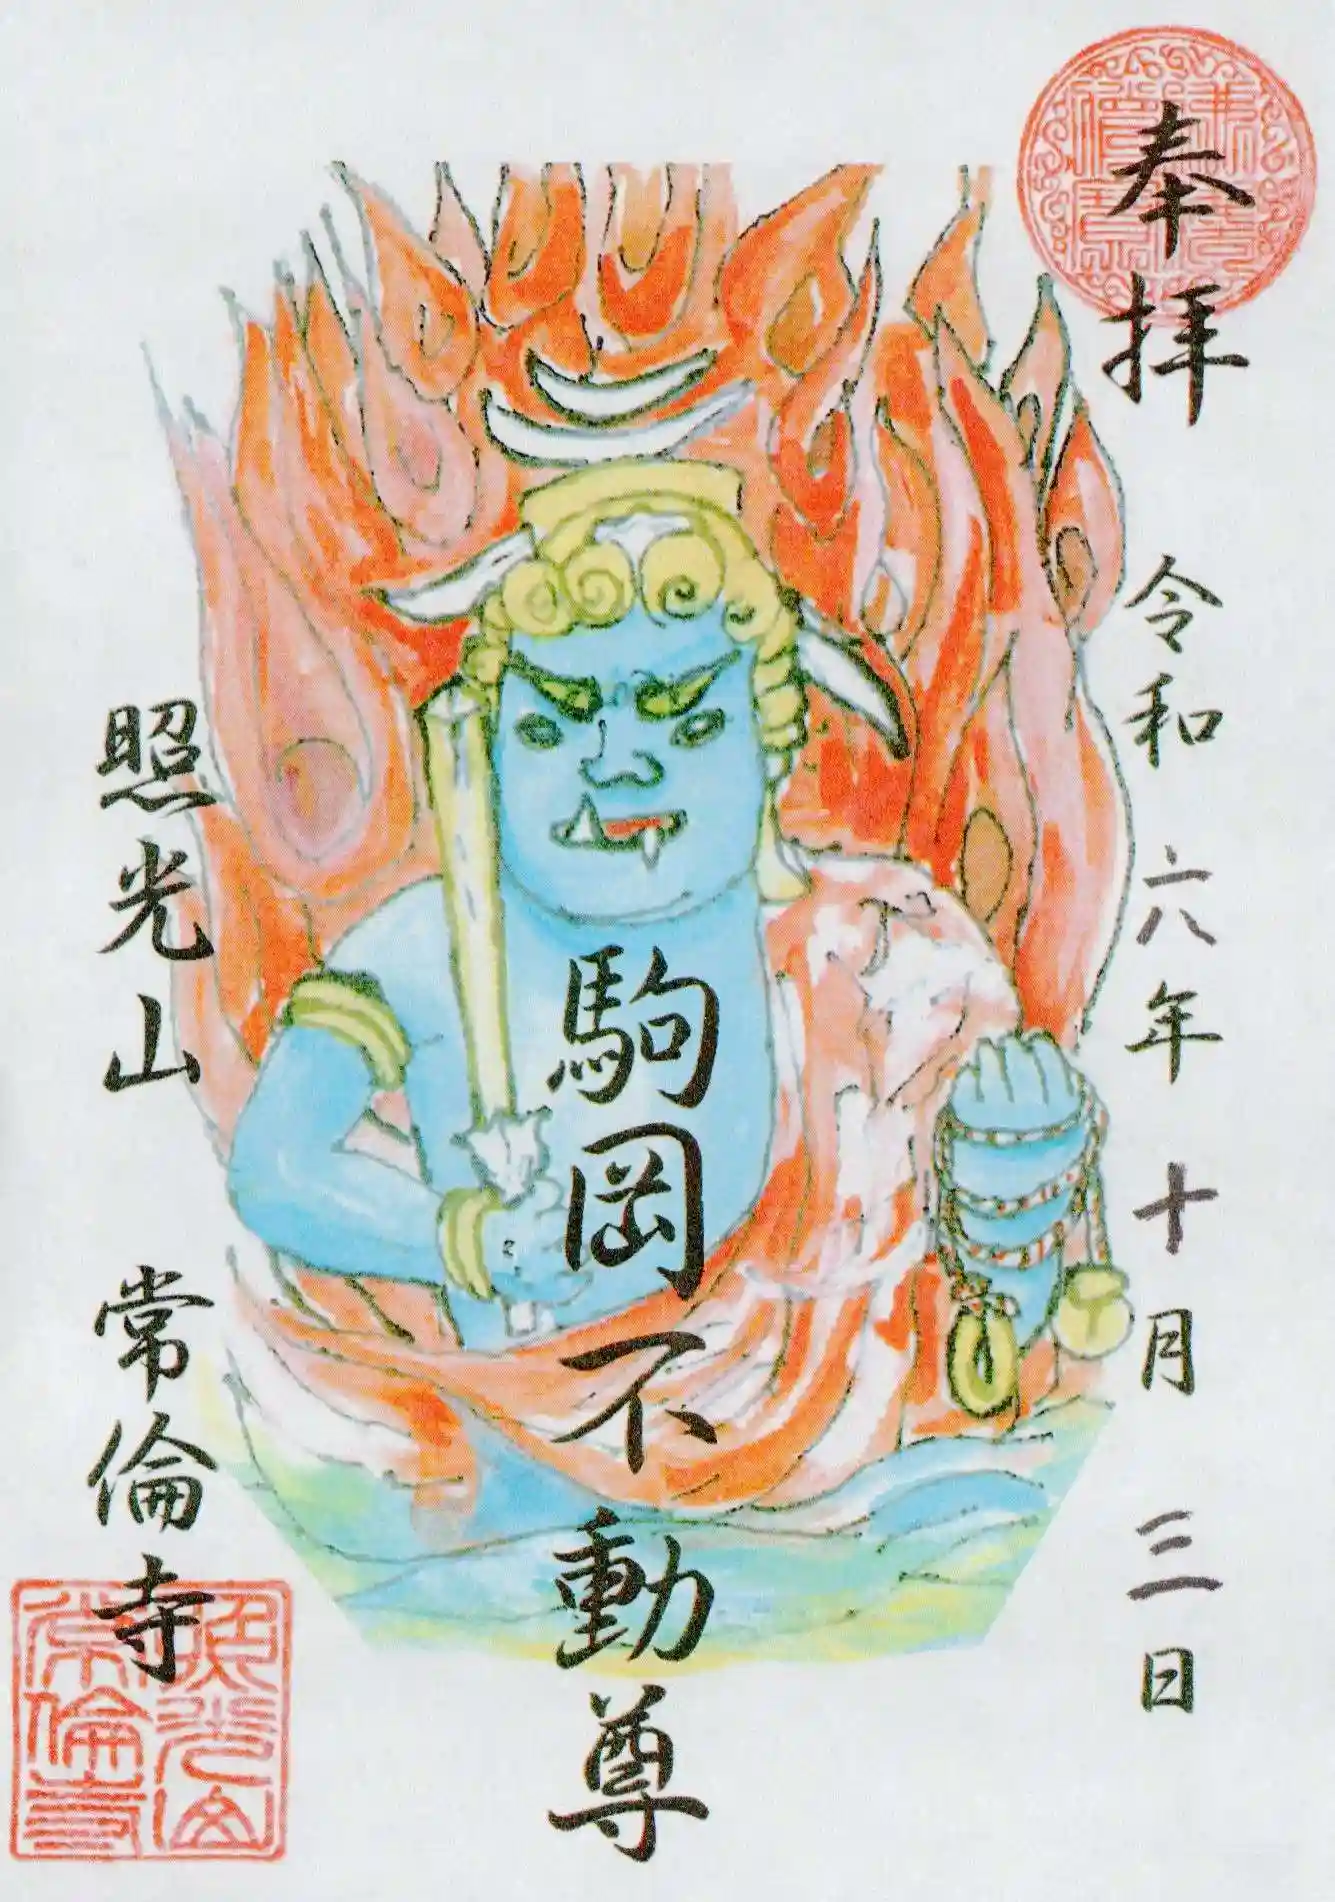 奉拝
令和六年十月三日
駒岡不動尊
照光山 常倫寺
照光山
常倫寺